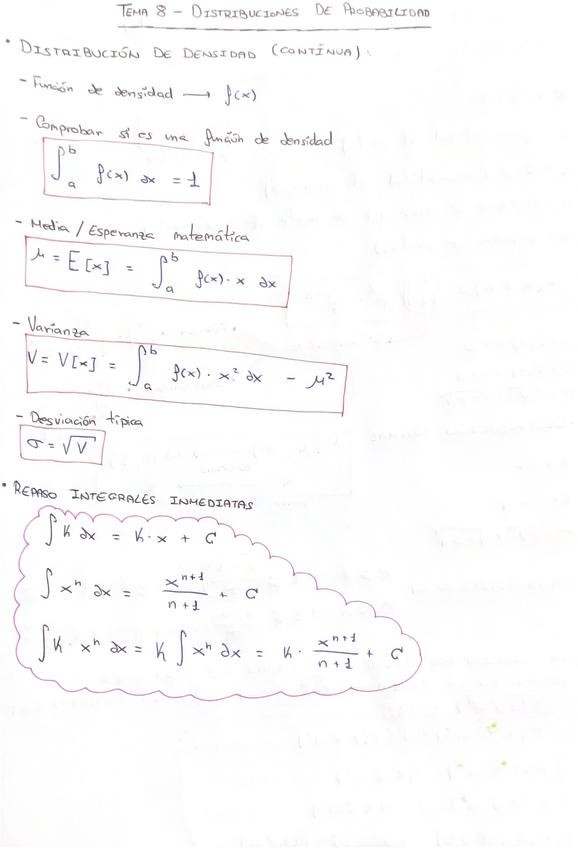 TEMA 8 - DISTRIBUCIONES DE PROBABILIDAD
• DISTRIBUCIÓN DE DENSIDAD (CONTÍNUA):
- Función de densidad → f(x)
- Comprobar si es una función de densidad
∫_a^b f(x) dx = 1
- Media / Esperanza matemática
μ = E[x] = ∫_a^b f(x) · x dx
- Varianza
V = V[x] = ∫_a^b f(x) · x² dx - μ²
- Desviación típica
σ = √V
• REPASO INTEGRALES INMEDIATAS
∫ K dx = K · x + C
∫ xⁿ dx = x^(n+1) / (n+1) + C
∫ K · xⁿ dx = K ∫ xⁿ dx = K · x^(n+1) / (n+1) + C